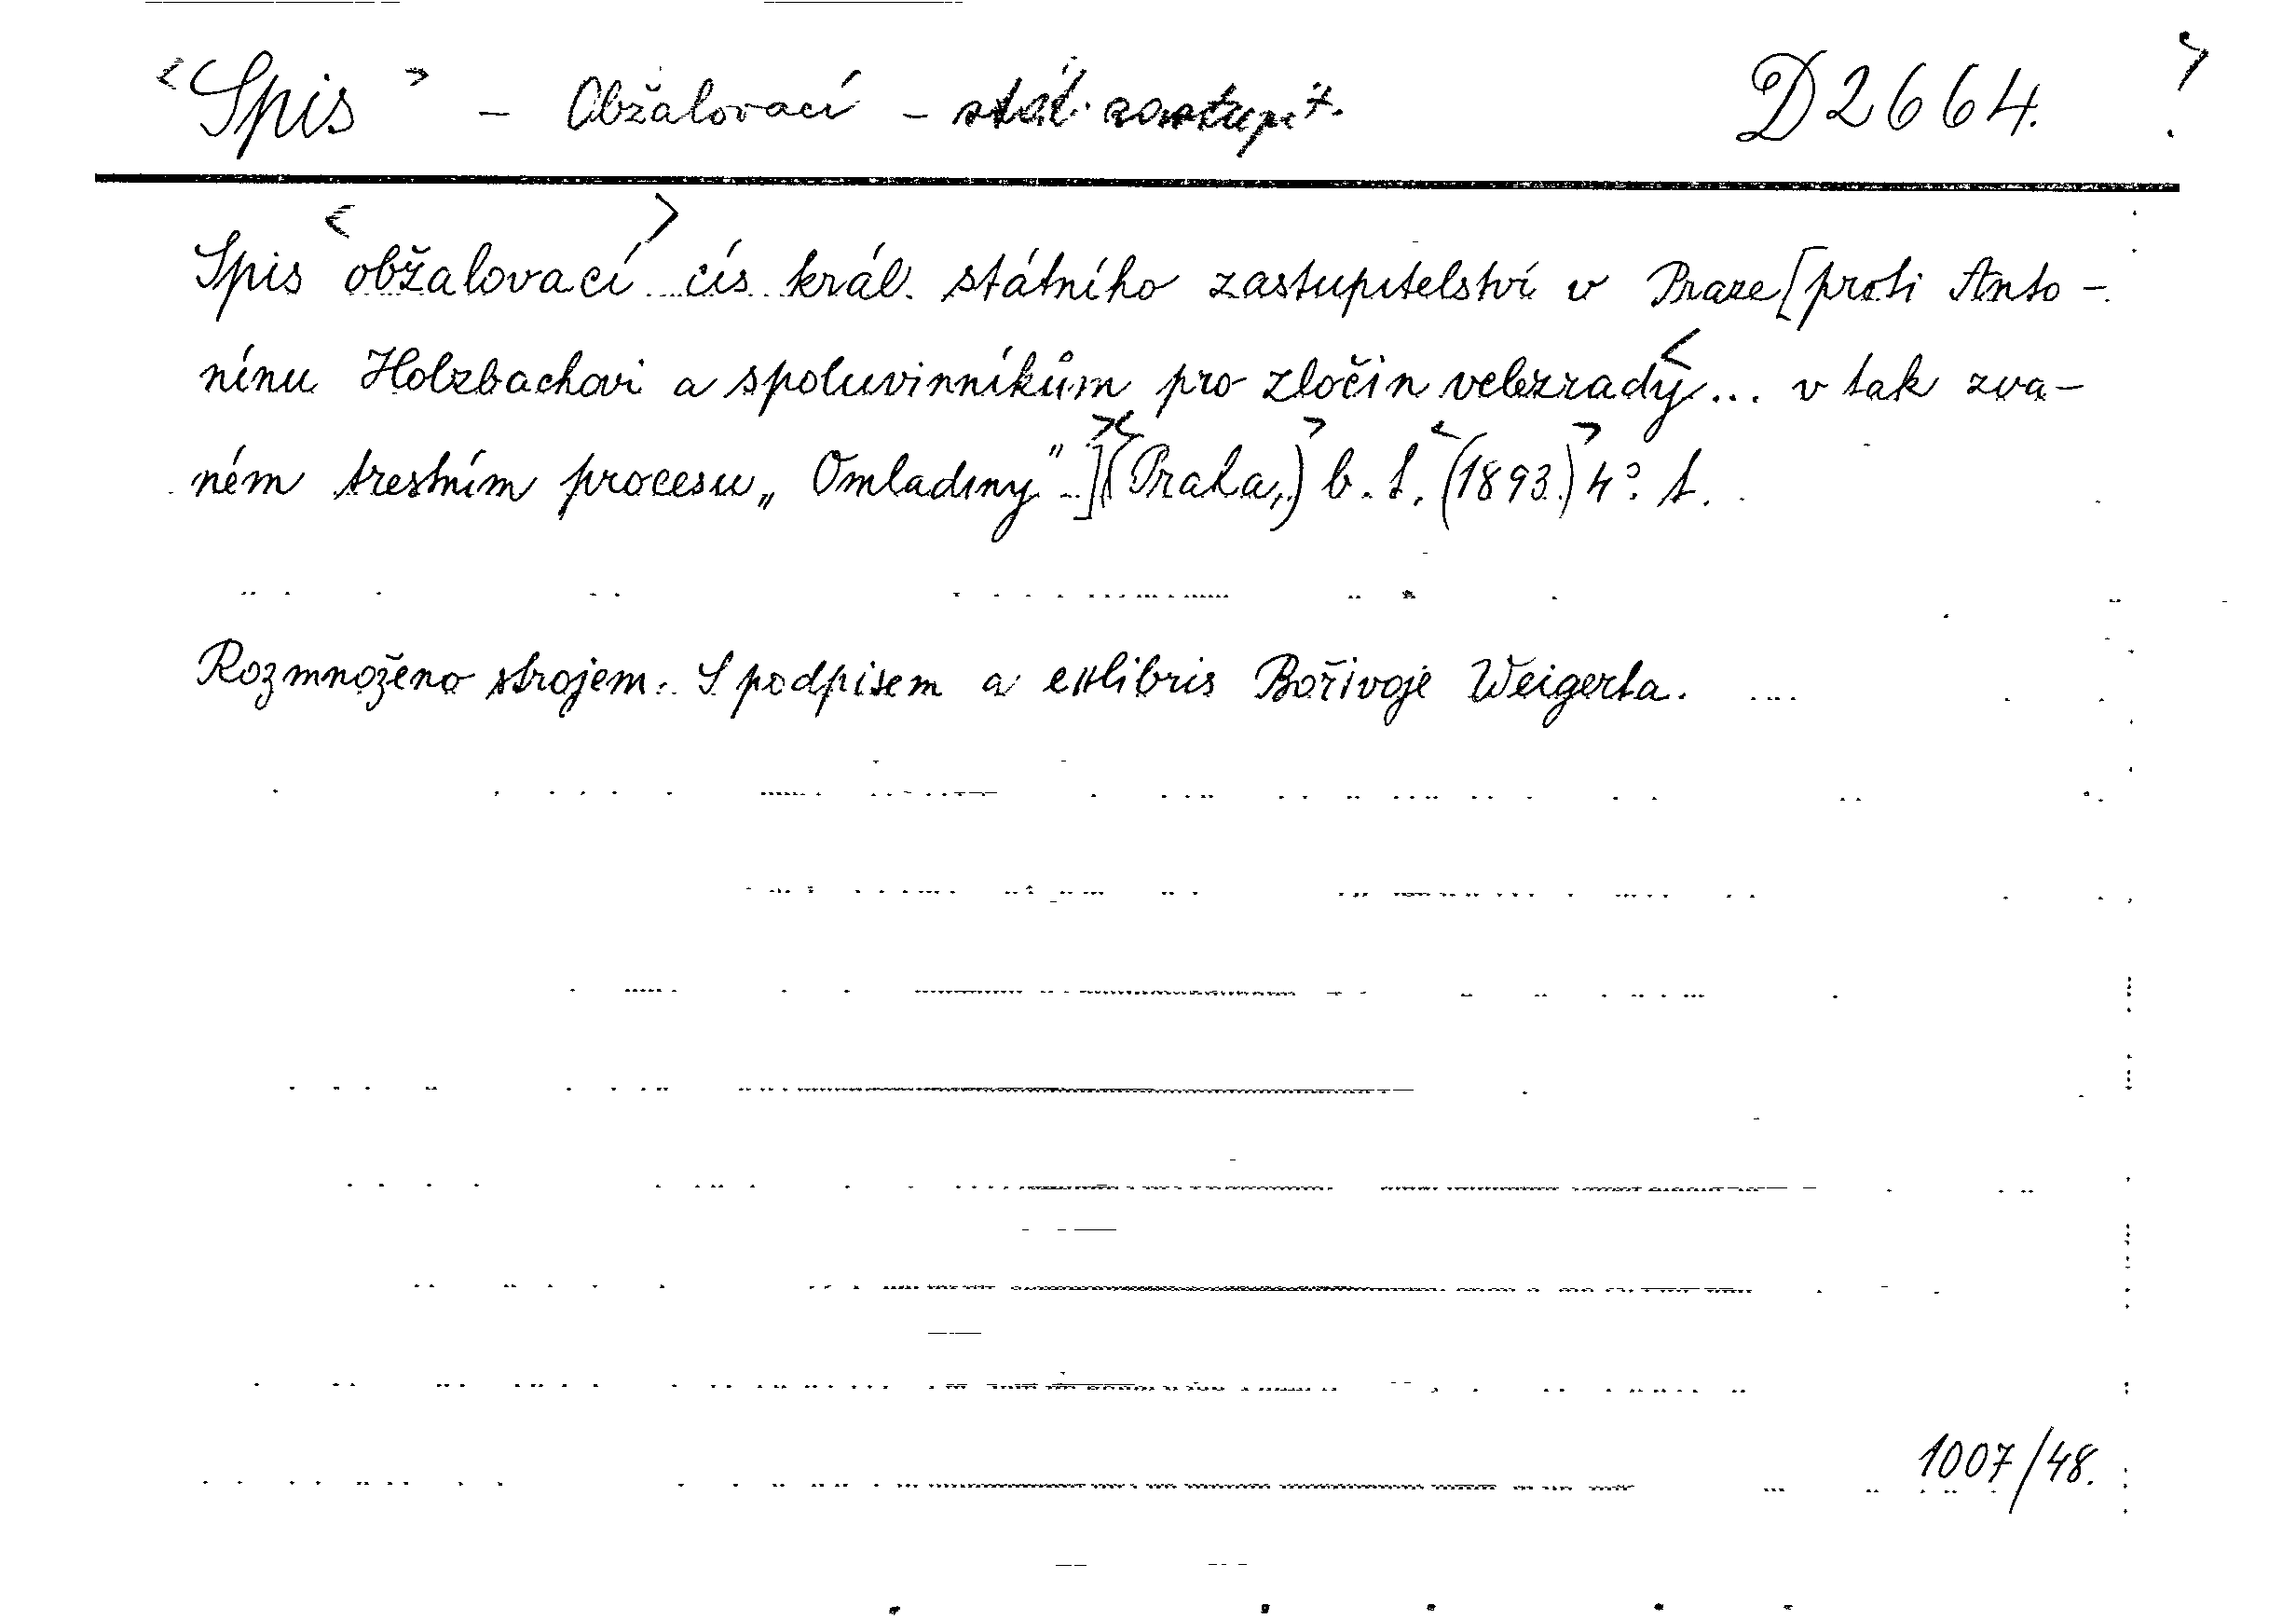 <Spis> - Obžalovací - stát. zastupit. D 2664.
Spis <obžalovací> cís. král. státního zastupitelství v Praze [proti Anto-
nínu Holzbachovi a spoluvinníkům pro zločin velezrady<... v tak zva-
ném trestním procesu „Omladiny"..]><(Praha,)> b. t. <(1893.)> 4°. t.
Rozmnoženo strojem. S podpisem a exlibris Bořivoje Weigerta.
1007/48.